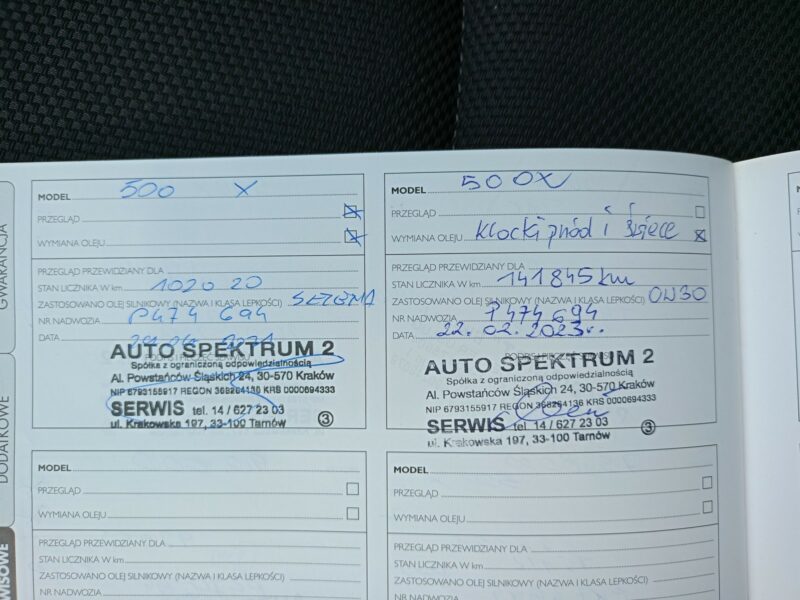 GWARANCJA
DODATKOWE
WISOWE
MODEL 500 X
PRZEGLĄD
WYMIANA OLEJU
PRZEGLĄD PRZEWIDZIANY DLA
STAN LICZNIKA W km 102020
ZASTOSOWANO OLEJ SILNIKOWY (NAZWA I KLASA LEPKOŚCI)
NR NADWOZIA P474 694
DATA
AUTO SPEKTRUM 2
Spółka z ograniczoną odpowiedzialnością
Al. Powstańców Śląskich 24, 30-570 Kraków
NIP 6793155917 REGON 368264136 KRS 0000694333
SERWIS tel. 14 / 627 23 03
ul. Krakowska 197, 33-100 Tarnów
3
MODEL 500X
PRZEGLĄD
WYMIANA OLEJU Klocki przód i świece
PRZEGLĄD PRZEWIDZIANY DLA
STAN LICZNIKA W km 141845 km
ZASTOSOWANO OLEJ SILNIKOWY (NAZWA I KLASA LEPKOŚCI) 0W30
NR NADWOZIA P474 694
DATA 22.02.2023r.
AUTO SPEKTRUM 2
Spółka z ograniczoną odpowiedzialnością
Al. Powstańców Śląskich 24, 30-570 Kraków
NIP 6793155917 REGON 368264136 KRS 0000694333
SERWIS tel 14 / 627 23 03
ul. Krakowska 197, 33-100 Tarnów
3
MODEL
PRZEGLĄD
WYMIANA OLEJU
PRZEGLĄD PRZEWIDZIANY DLA
STAN LICZNIKA W km
ZASTOSOWANO OLEJ SILNIKOWY (NAZWA I KLASA LEPKOŚCI)
NR NADWOZIA
MODEL
PRZEGLĄD
WYMIANA OLEJU
PRZEGLĄD PRZEWIDZIANY DLA
STAN LICZNIKA W km
ZASTOSOWANO OLEJ SILNIKOWY (NAZWA I KLASA LEPKOŚCI)
NR NADWOZIA